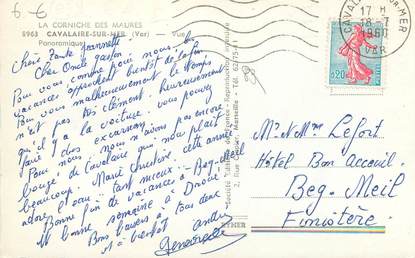 LA CORNICHE DES MAURES
8963 CAVALAIRE-SUR-MER (Var) — Vue
Panoramique
Chère Tante Jeannette
Cher Oncle Gaston
Pour vous, comme pour nous, les
vacances approchent bientôt de la fin.
Pour vous malheureusement le temps
n'est pas très clément. heureusement
qu'il y a la voiture, vous pouvez
faire des excursions.
Pour nous, nous n'avons pas encore
bougé de Cavalaire qui nous plaît
beaucoup. Marie Christine cette année
adore l'eau, tant mieux.
Bonne fin de vacances à Beg-Meil
et bonne semaine à
Bons baisers à tous deux
et à bientôt
André
Geneviève
17 H
18-7
1960
VAR
CAVALAIRE-SUR-MER
0,20
Mr & Mme Lefort
Hôtel Bon Acceuil
Beg-Meil
Finistère